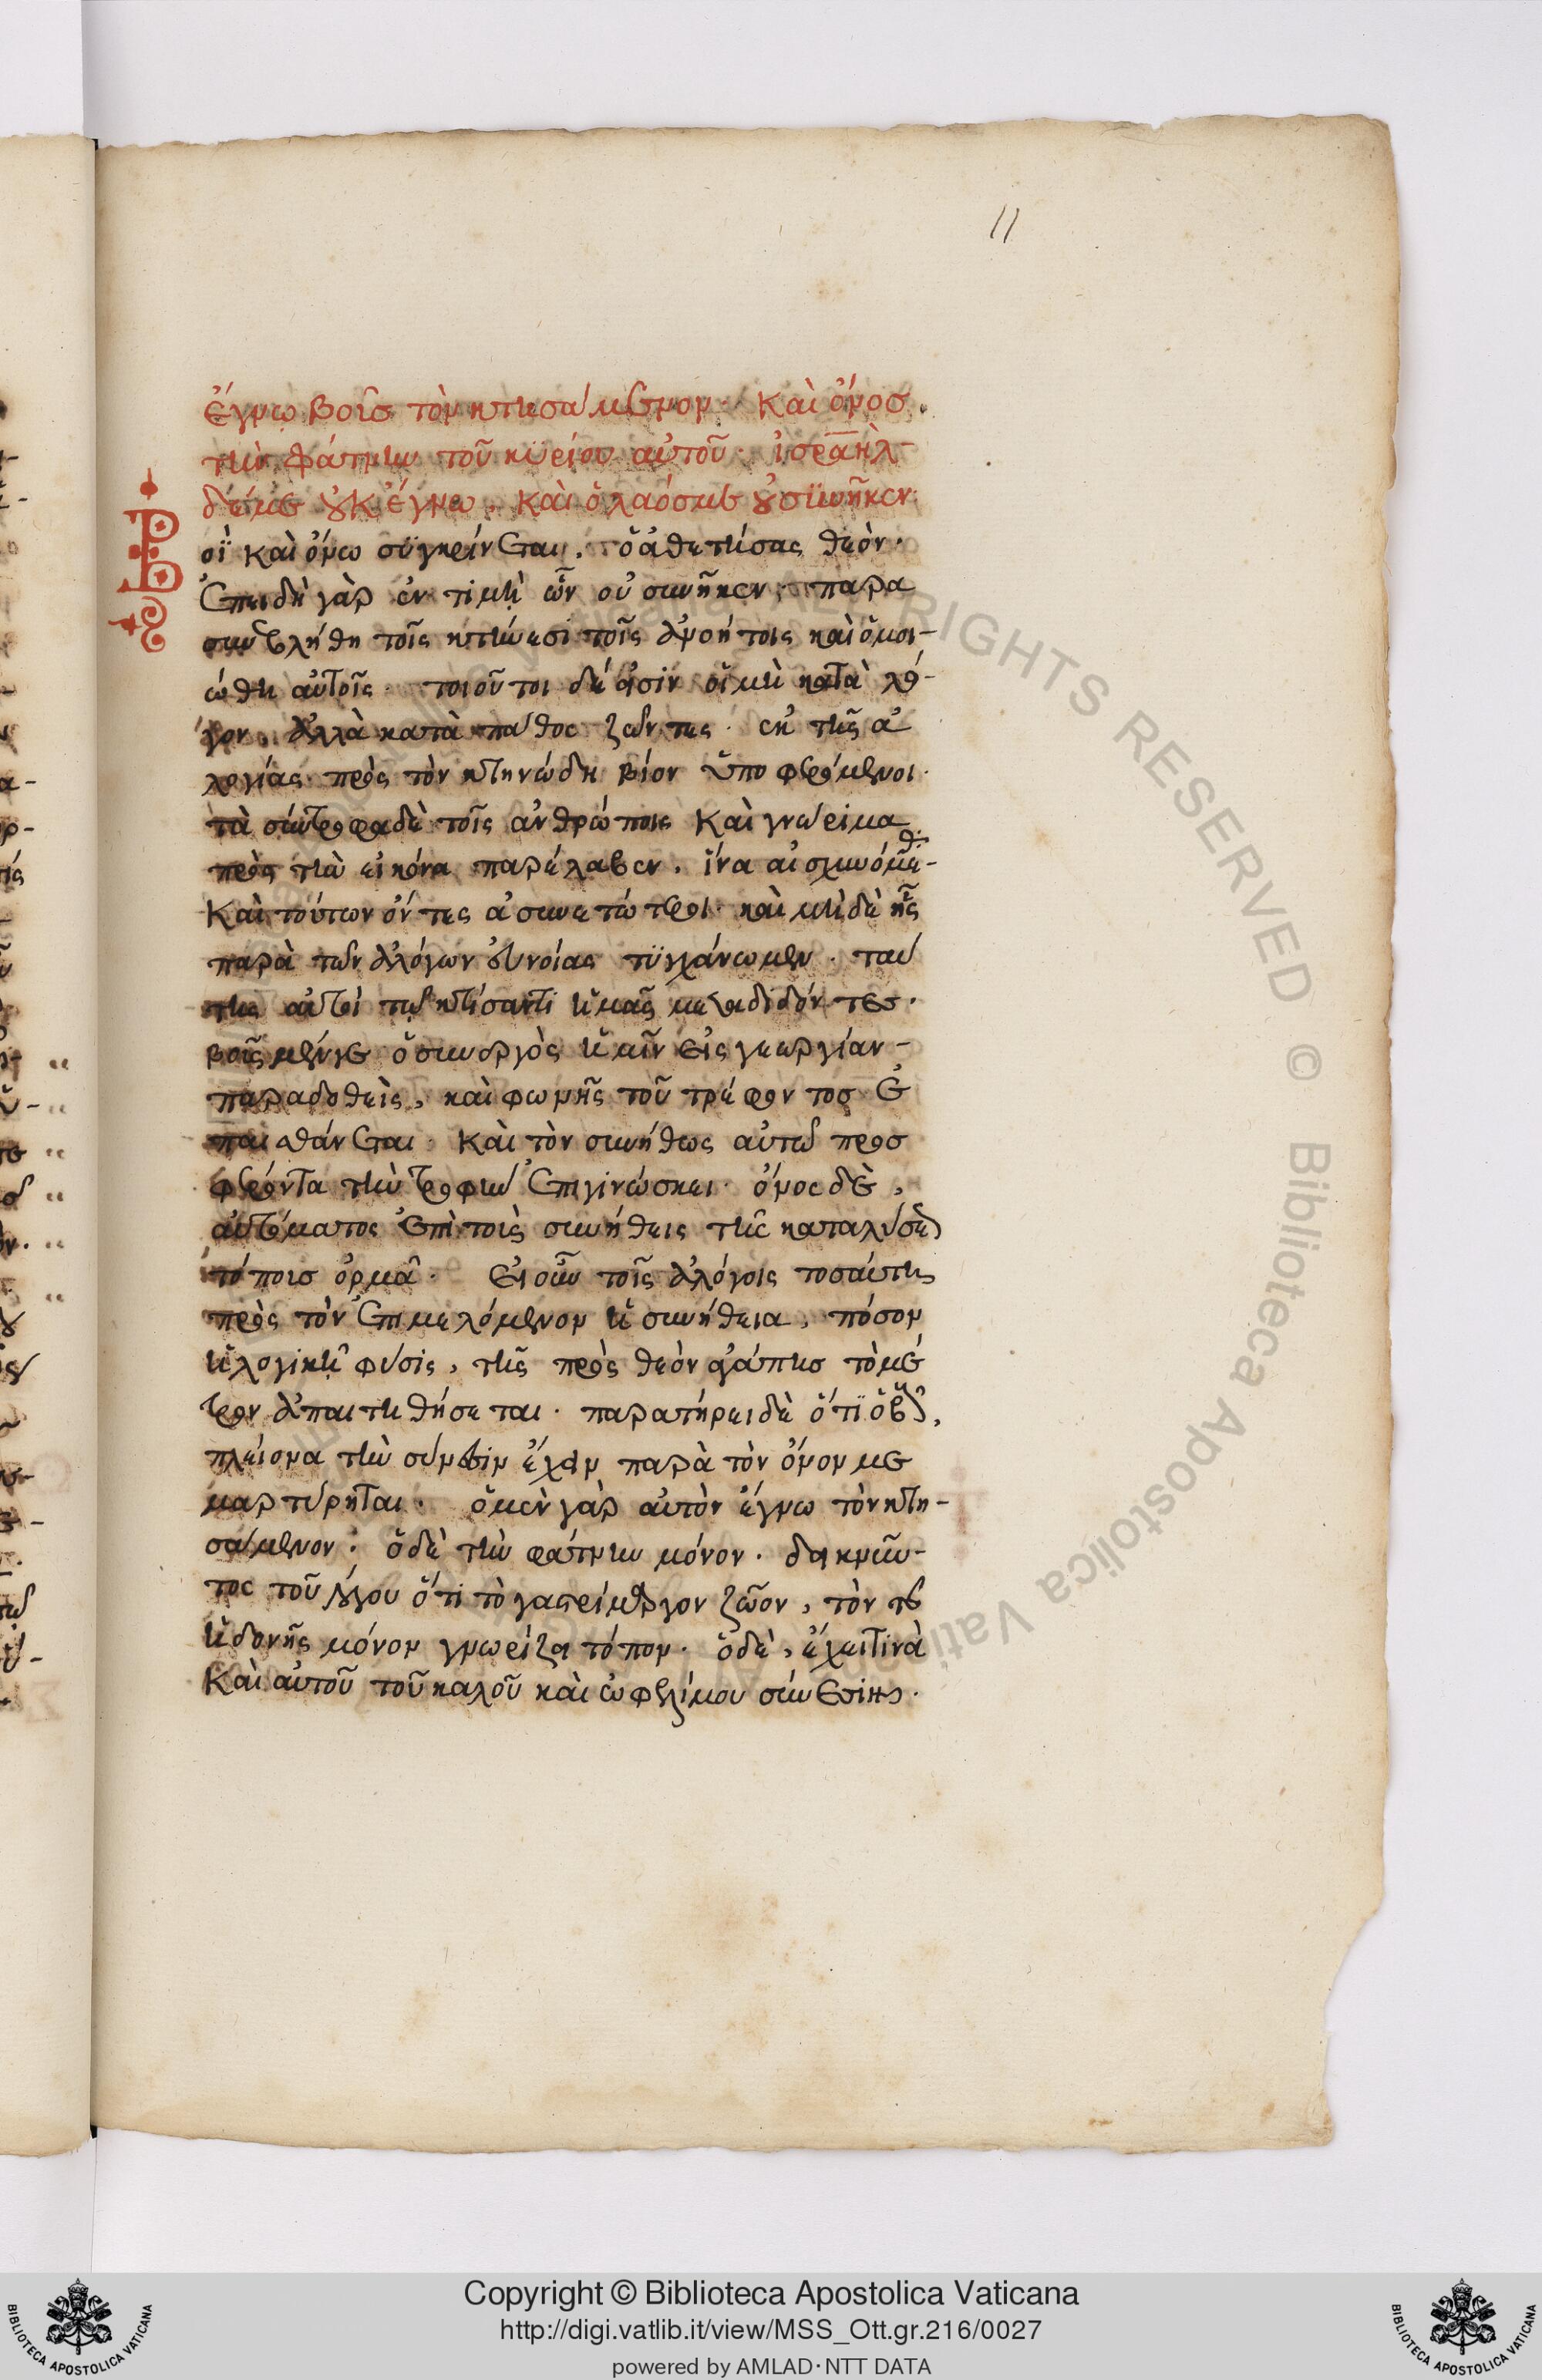 11
ἔγνω βοῦς τὸν κτησάμενον· καὶ ὄνος
τὴν φάτνην τοῦ κυρίου αὐτοῦ· ἰσραὴλ
δέ με οὐκ ἔγνω, καὶ ὁ λαός με οὐ συνῆκεν·
Βοῒ καὶ ὄνω συγκρίνεται, ὁ ἀθετήσας θεόν·
ἐπειδὴ γὰρ ἐν τιμῇ ὢν οὐ συνῆκεν· παρα
συνεβλήθη τοῖς κτήνεσι τοῖς ἀνοήτοις καὶ ὁμοι-
ώθη αὐτοῖς· τοιοῦτοι δέ εἰσιν οἱ μὴ κατὰ λό-
γον, ἀλλὰ κατὰ πάθος ζῶντες· ἐκ τῆς ἀ
λογίας πρὸς τὸν κτηνώδη βίον ὑποφερόμενοι·
τὰ σύντροφα δὲ τοῖς ἀνθρώποις καὶ γνώριμα
πρὸς τὴν εἰκόνα παρέλαβεν, ἵνα αἰσχυνόμεθα-
καὶ τούτων ὄντες ἀσυνετώτεροι· καὶ μηδὲ τῆς
παρὰ τῶν ἀλόγων εὐνοίας τυγχάνωμεν· ταύ
της ἀντὶ τῷ κτίσαντι ἡμᾶς μεταδιδόντες·
βοῦς μέν γε ὁ συνεργὸς ἡμῖν εἰς γεωργίαν-
παραδοθεὶς, καὶ φωνῆς τοῦ τρέφοντος ἐ
παισθάνεται· καὶ τὸν συνήθως αὐτῷ προσ
φέροντα τὴν τροφὴν ἐπιγινώσκει· ὄνος δὲ,
αὐτόματος ἐπὶ τοὺς συνήθεις τῆς καταλύσεως
τόποις ὁρμᾷ· εἰ οὖν τοῖς ἀλόγοις τοσαύτη
πρὸς τὸν ἐπιμελόμενον ἡ συνήθεια, πόσον
ἡ λογικὴ φύσις, τῆς πρὸς θεὸν ἀγάπης τὸ μέ
τρον ἀπαιτηθήσεται· παρατήρει δὲ ὅτι ὁ βοῦς,
πλείονα τὴν σύνεσιν ἔχειν παρὰ τὸν ὄνον με
μαρτύρηται· ὁ μὲν γὰρ αὐτὸν ἔγνω τὸν κτη-
σάμενον· ὁ δὲ τὴν φάτνην μόνον· δεικνύν-
τος τοῦ λόγου ὅτι τὸ γαστρίμαργον ζῶον, τὸν τῆς
ἡδονῆς μόνον γνωρίζει τόπον· ὁ δὲ, ἔχει τινὰ
καὶ αὐτοῦ τοῦ καλοῦ καὶ ὠφελίμου σύνεσιν·
Copyright © Biblioteca Apostolica Vaticana
http://digi.vatlib.it/view/MSS_Ott.gr.216/0027
powered by AMLAD·NTT DATA